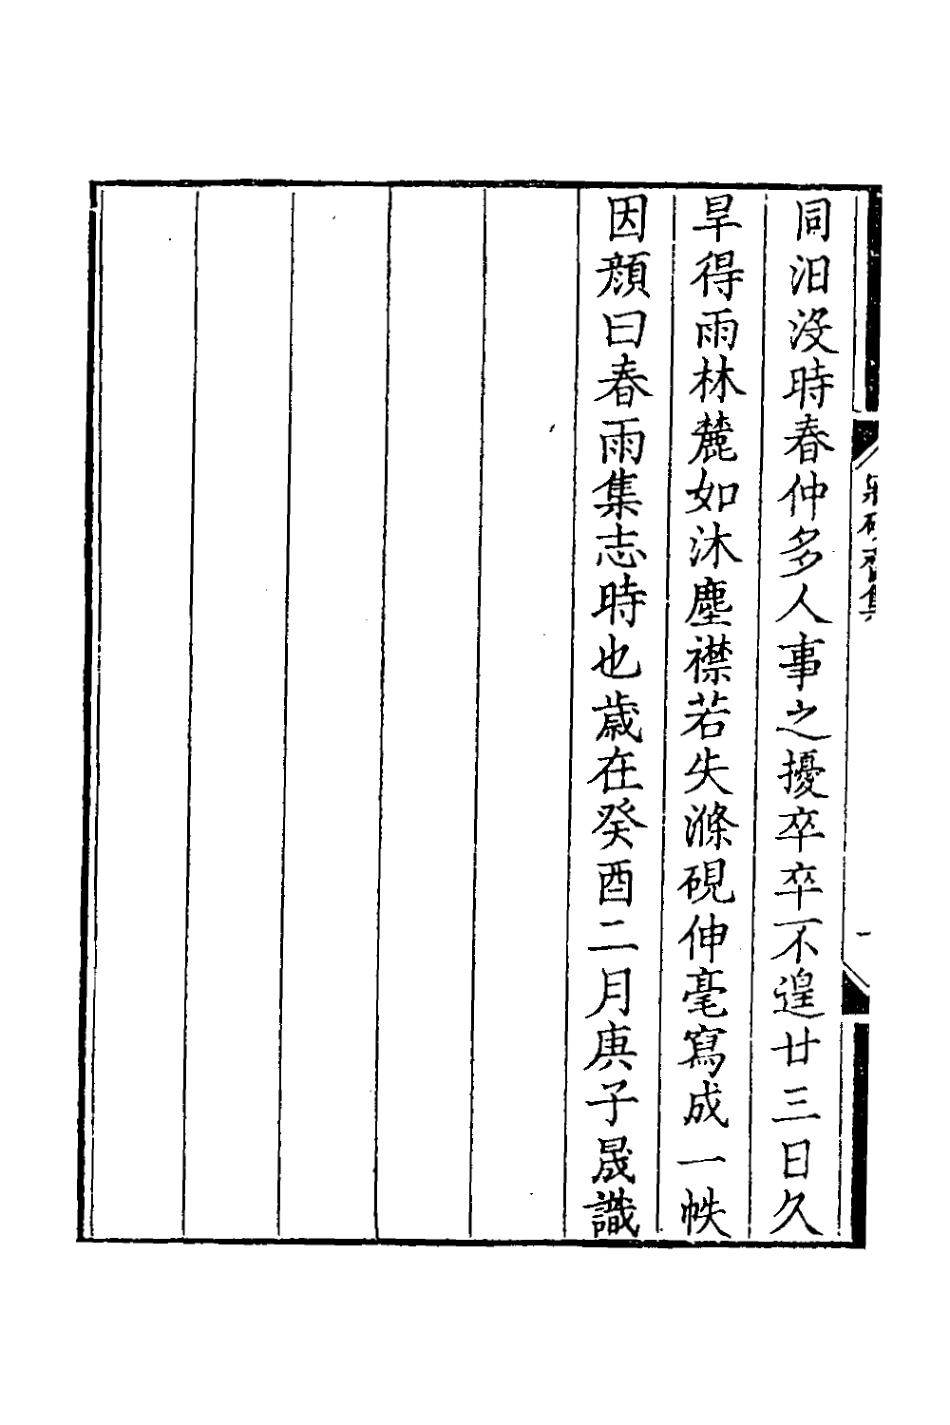 同汨没時春仲多人事之擾卒卒不遑廿三日久
旱得雨林麓如沐塵襟若失滌硯伸毫寫成一帙
因顏曰春雨集志時也歲在癸酉二月庚子晟識
一